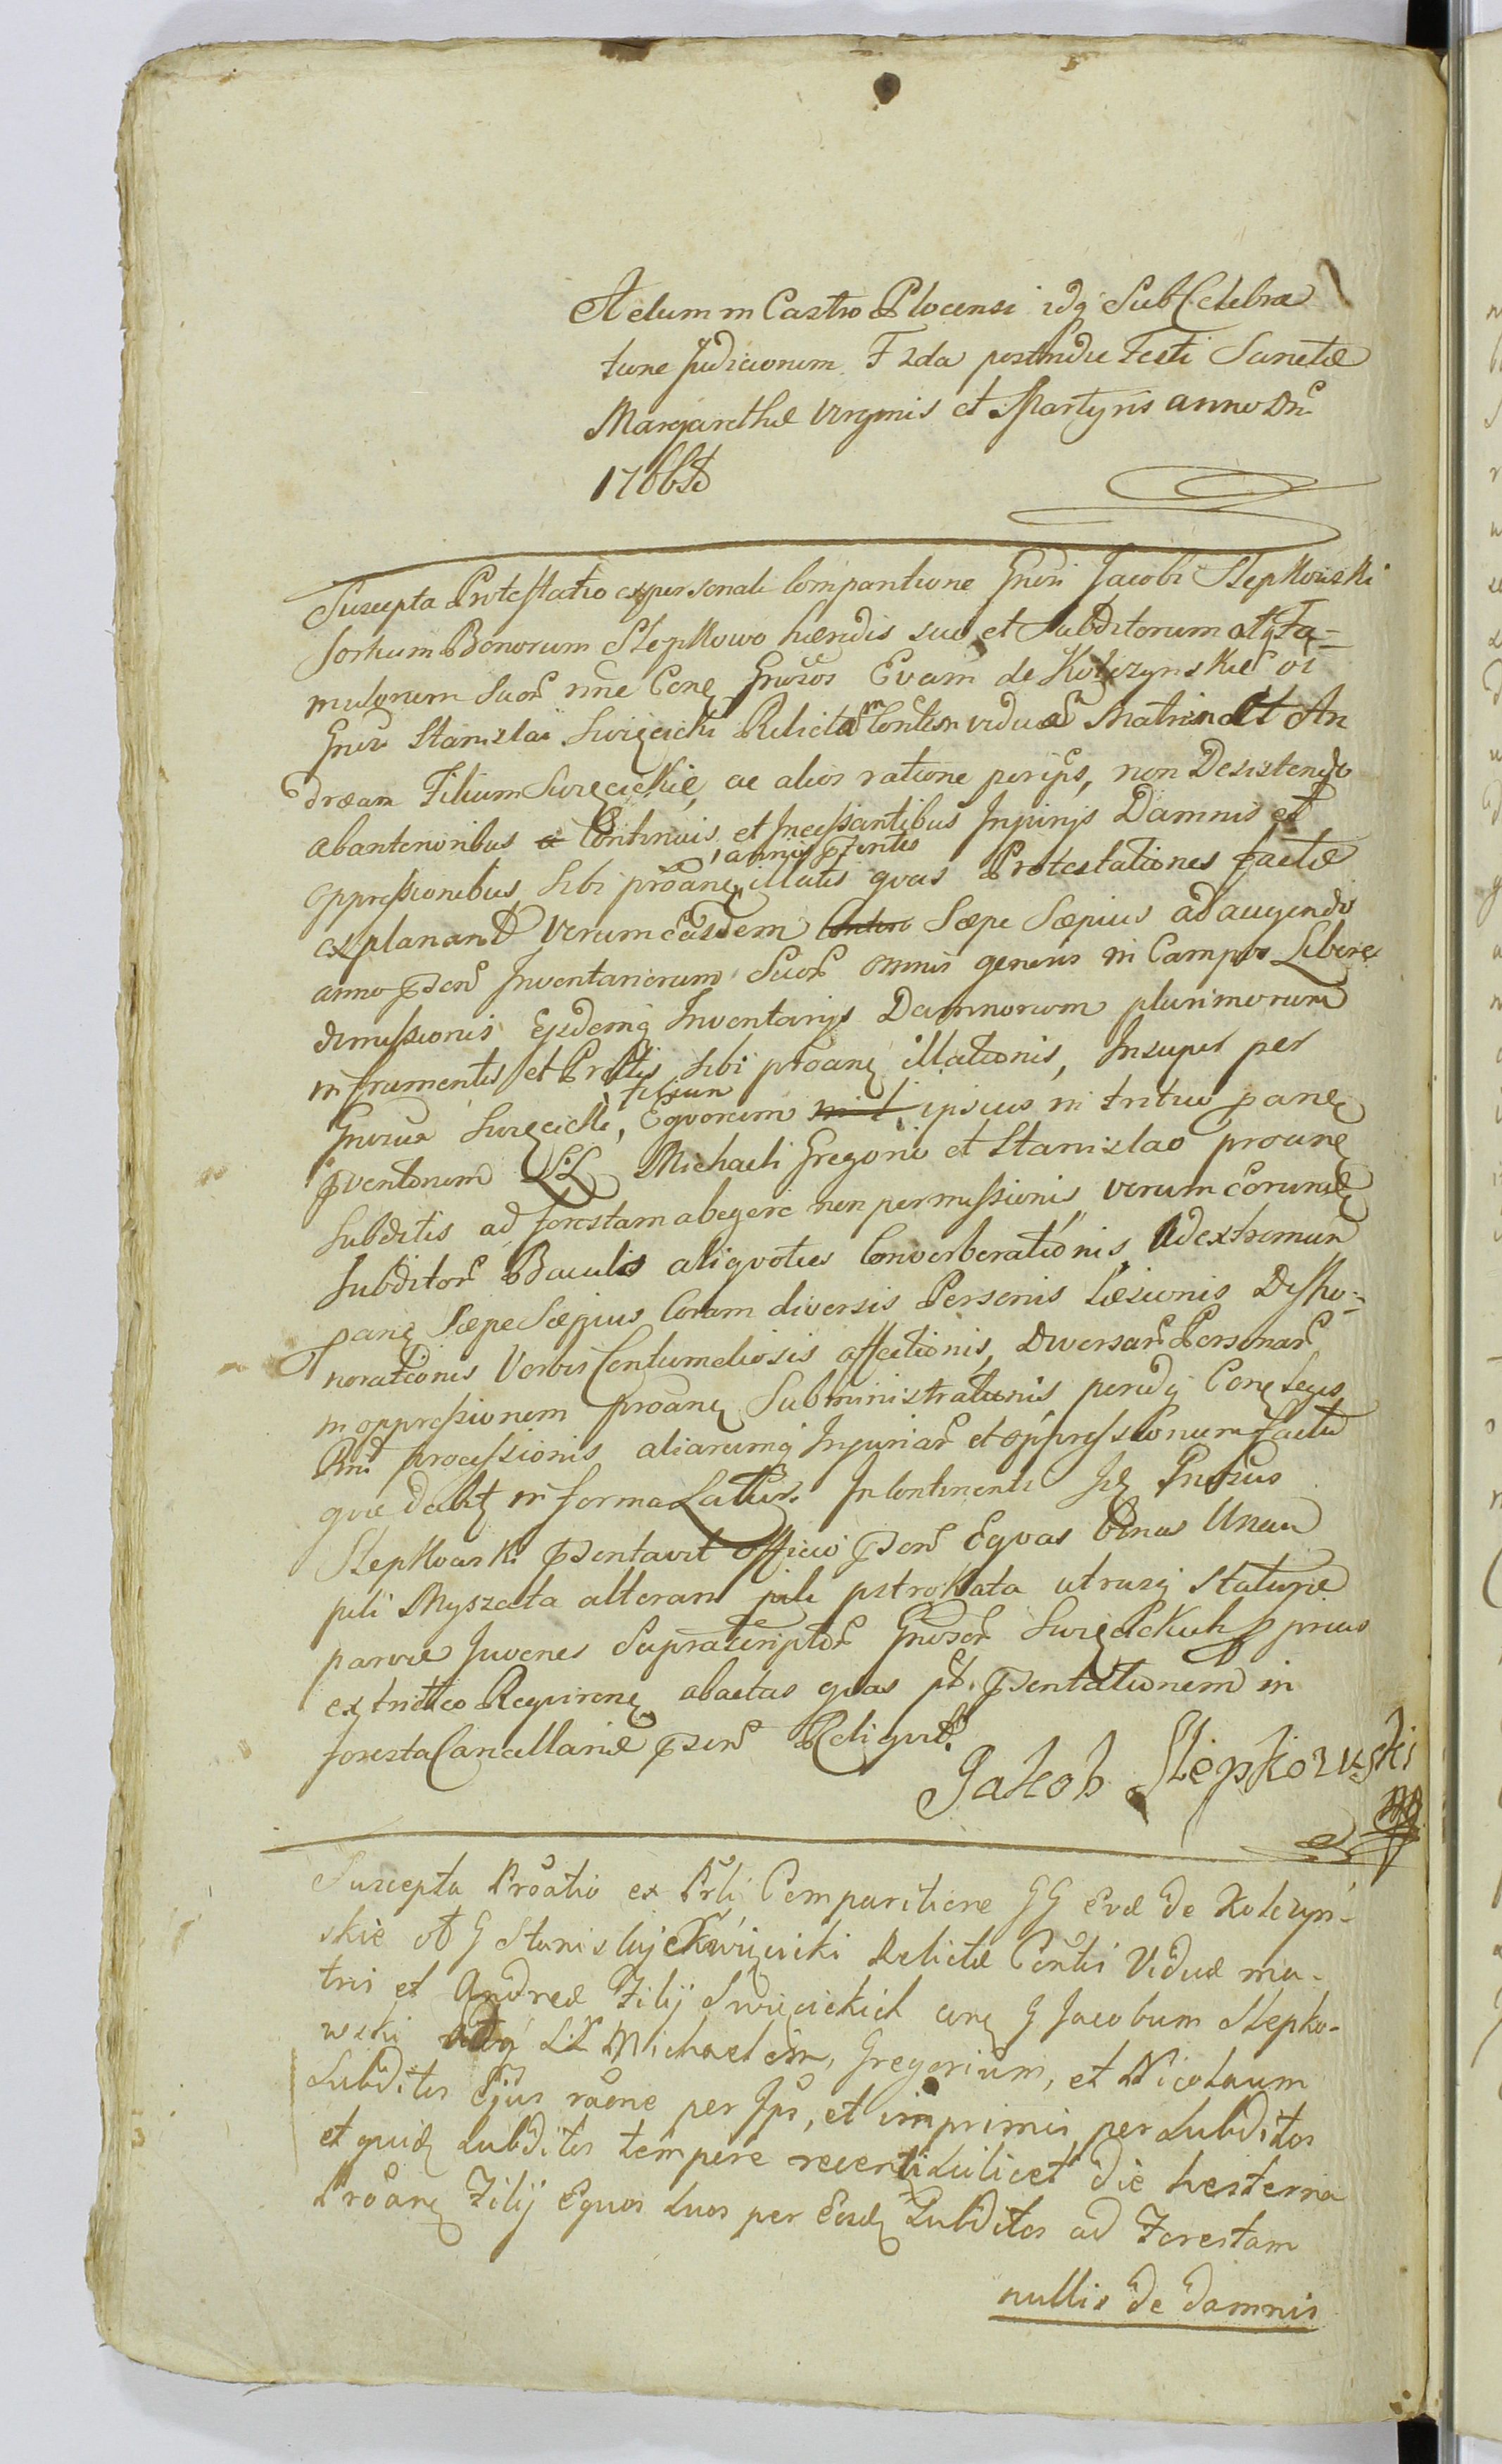 Actum in Castro Plocensi idq Sub Celebra
tione Judiciorum F 2da postridie Festi Sanctæ
Margarethæ Virginis et Martyris anno Dni
1766to
Suscepta Protestatio ex personali Comparitione Gnosi Jacobi Slepkowski
sortium Bonorum Slepkowo hæredis suo et Subditorum atq Fa-
mulorum Suor nne Conq Gnosos Evam de Kolczynskie oi
Gnosi Stanislai Swięcicki Relictam Contem viduā Matrem et An
dream Filium Swięcickie, ac alios ratione per ipos, non Desistendo
ab anterioribus a Continuis et Incessantibus Injurijs Damnis et
oppressionibus Sibi proanq annis pterites illatis quas Protestationes factæ
explanant Verum easdem Sæpe Sæpius ad augendo
anno psen Inventariorum Suor omnis generis in Campos Liberæ
dimissionis Ejsdemq Inventarijs Damnorum plurimorum
in frumentis et Pratis Sibi proanq illationis, Insuper per
Gnosum Swięcicki, Filium Equorum ipsius in tritico panq
pventorum LL Michaeli Gregorio et Stanislao proanq
Subditis ad forestam abegere non permissionis, verum eorundq
Subditor Baculis aliquoties Converberationis, Ad extremum
panq Sæpe Sæpius Coram diversis Personis Læsionis Disho-
norationis Verbis Contumeliosis affectionis, Diversar Personar
in oppressionem proanq Subministrationis peridq Conq Leges
Rni processionis aliarumq Injuriar et oppressionum factæ
quæ dabit in forma Latius. In Continenti Idq Gnosus
Slepkowski psentavit officio psen Equas binas Unam
pili Myszata alteram pili pstrokata utrasq staturæ
parvæ Juvenes Suprascriptor Gnosor Swięcickich prius
ex tritico Requirenq abactas quas pt psentationem in
foresta Cancellariæ psen Reliquit.
Jakob Slepkowski
mp
Suscepta Proatio ex Prli Comparitione GG Evæ de Kolczyn-
skie ot G Stanislaj Swięcicki Relictæ Contis Viduæ ma-
tris et Andreæ Filij Swięcickich conq G Jacobum Slepko-
wski atq LL Michaelem, Gregorium, et Nicolaum
Subditos Ejus raone per Ips, et imprimis per Subditos
et quidq Subditos tempore recenti Scilicet die hesterna
Proanq Filij Equos Suos per Eosdq Subditos ad Forestam
nullis de damnis